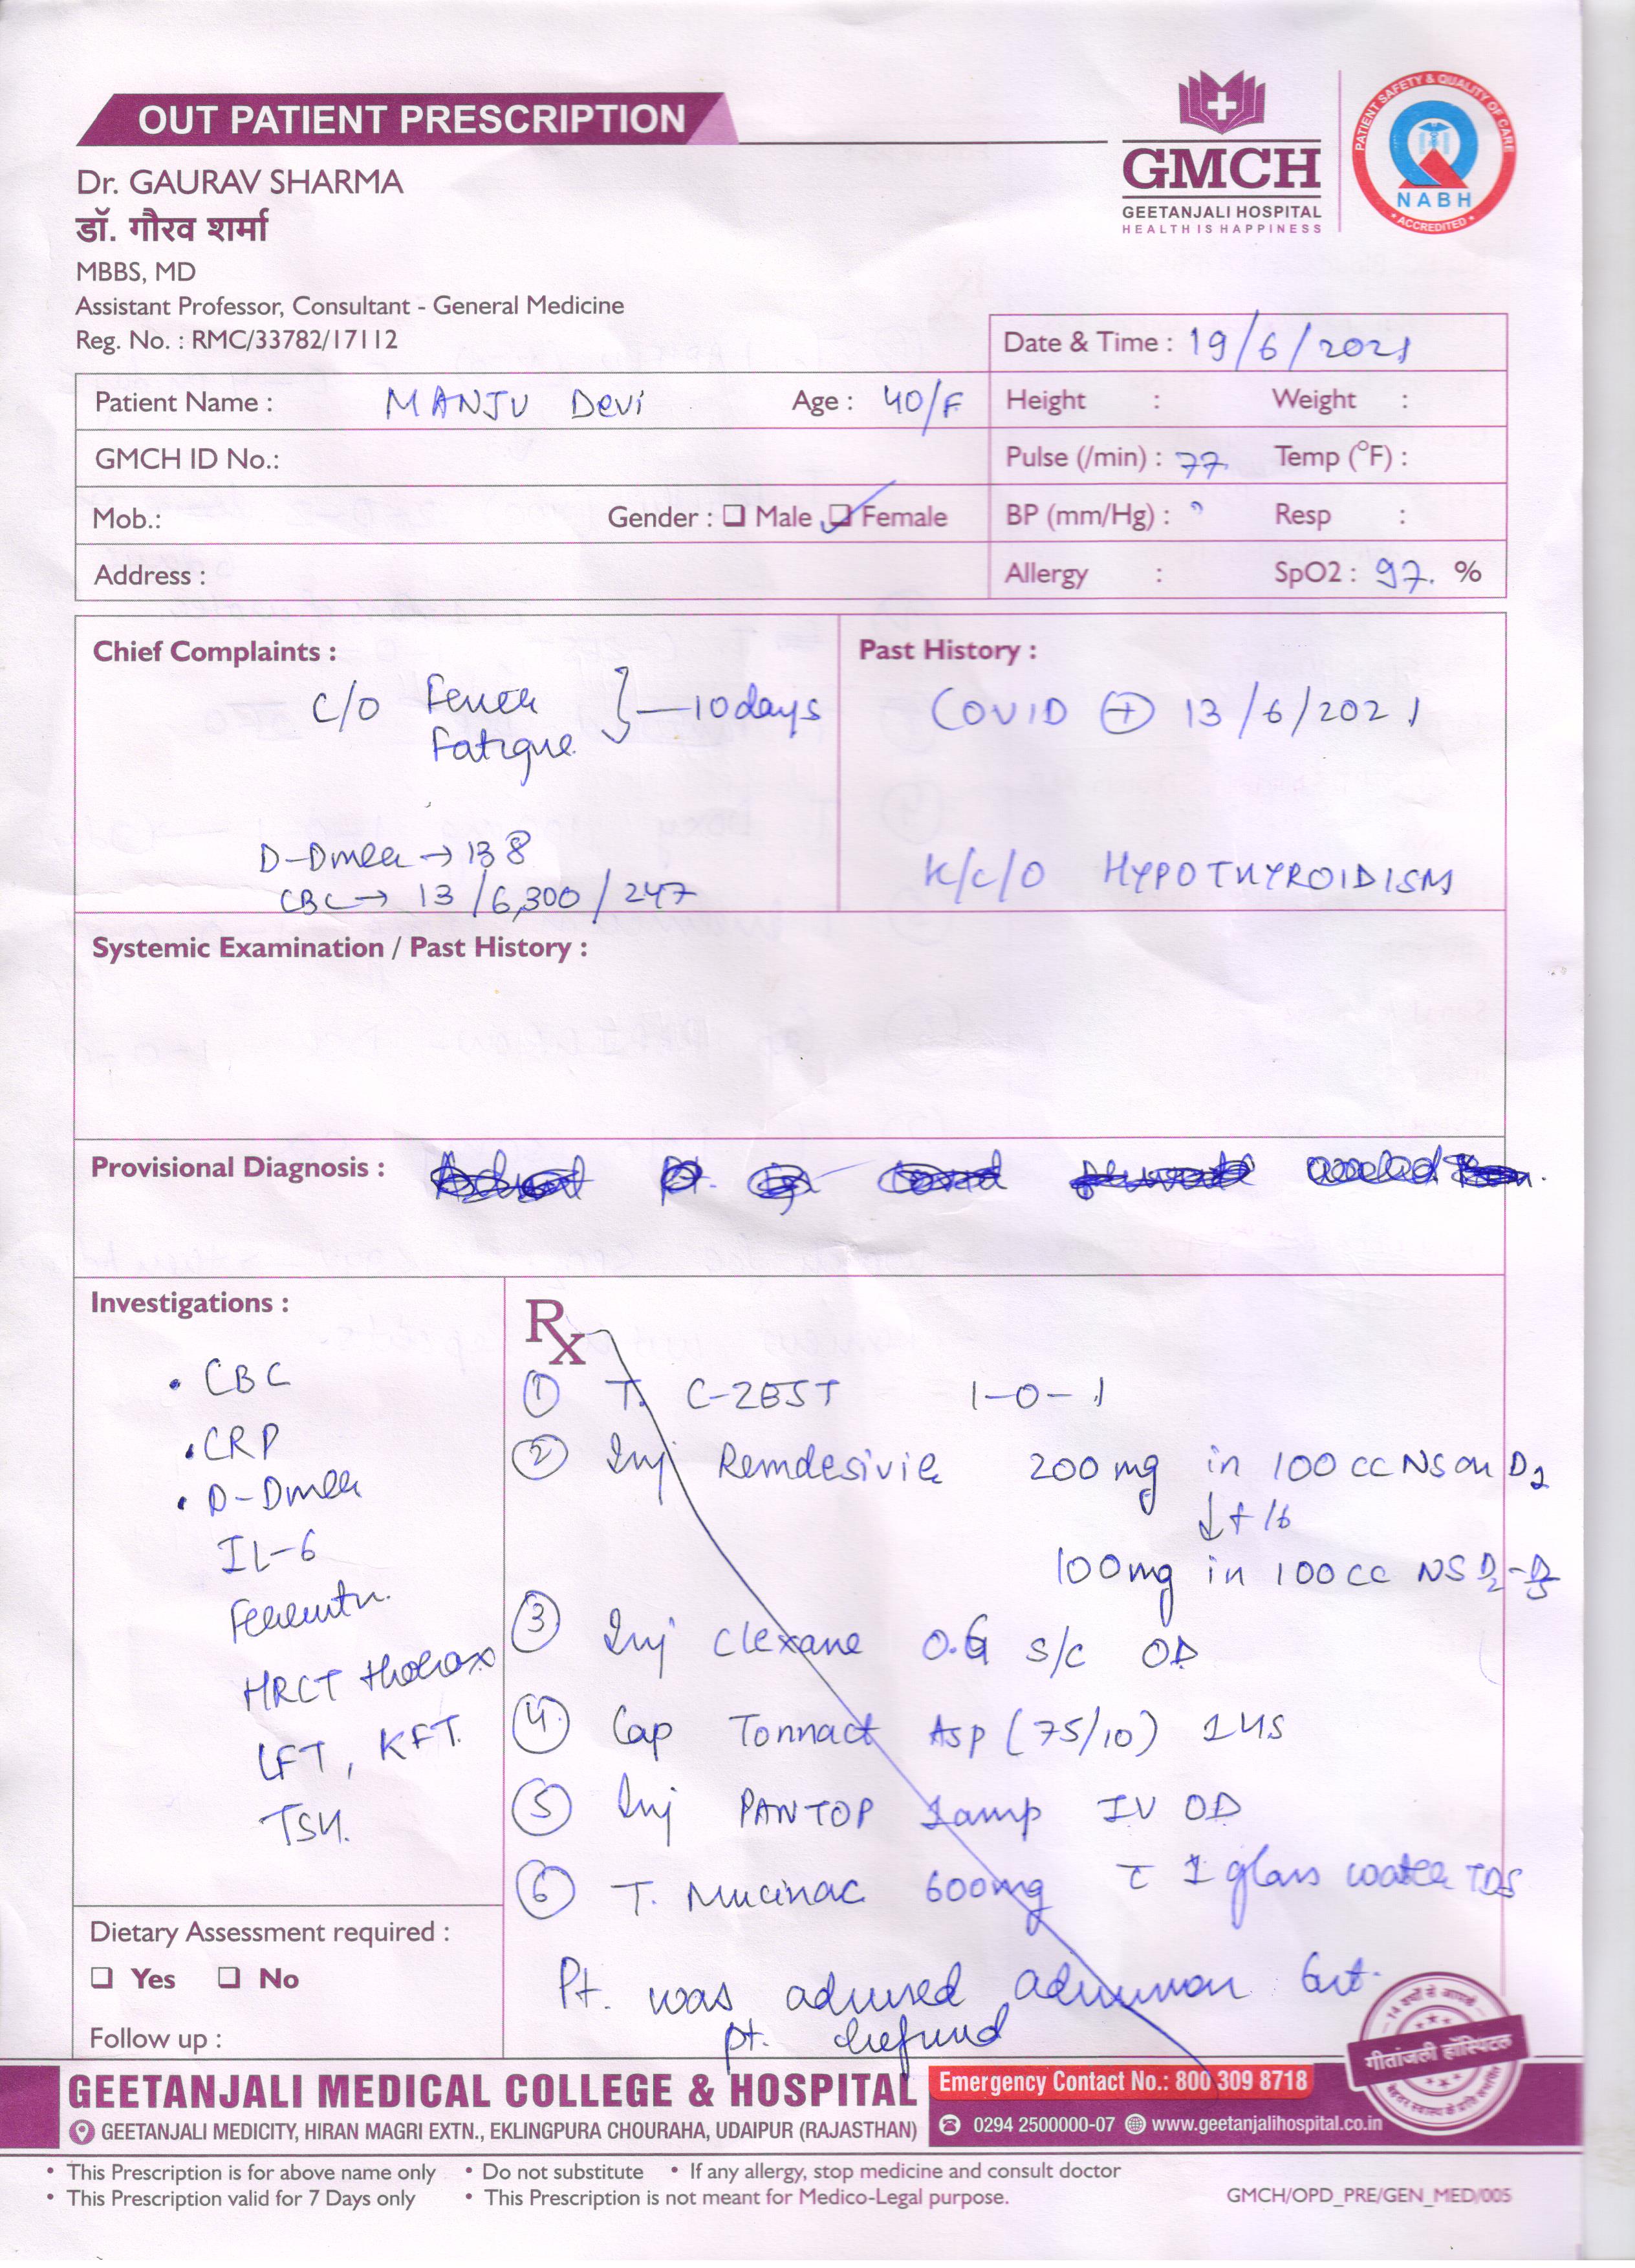 OUT PATIENT PRESCRIPTION
GMCH
GEETANJALI HOSPITAL
HEALTH IS HAPPINESS
PATIENT SAFETY & QUALITY OF CARE
NABH
ACCREDITED
Dr. GAURAV SHARMA
डॉ. गौरव शर्मा
MBBS, MD
Assistant Professor, Consultant - General Medicine
Reg. No. : RMC/33782/17112
Date & Time : 19/6/2021
Patient Name : MANJU Devi Age : 40/F
Height : Weight :
GMCH ID No.:
Pulse (/min) : 77 Temp (°F) :
Mob.: Gender : Male Female
BP (mm/Hg) : Resp :
Address :
Allergy : SpO2 : 97. %
Chief Complaints :
C/O Fever
Fatigue } — 10 days
D-Dmer → 138
CBC → 13 / 6,300 / 247
Past History :
COVID ⊕ 13/6/2021
K/C/O HYPOTHYROIDISM
Systemic Examination / Past History :
Provisional Diagnosis :
Investigations :
• CBC
• CRP
• D-Dmer
IL-6
HRCT thorax
LFT, KFT.
TSH.
Rx
① T. C-ZEST 1-0-1
② Inj Remdesivir 200 mg in 100 cc NS on
↓ f/b
100 mg in 100 cc NS
③ Inj Clexane 0.6 S/C OD
④ Cap Tonnact ASP (75/10) 1 HS
⑤ Inj PANTOP 1amp IV OD
⑥ T. Mucinac 600mg c̄ 1 glass water TDS
Pt. was advised admission but
pt. refused
Dietary Assessment required :
Yes No
Follow up :
14 वर्षों से आपके
गीतांजली हॉस्पिटल
GEETANJALI MEDICAL COLLEGE & HOSPITAL
Emergency Contact No.: 800 309 8718
GEETANJALI MEDICITY, HIRAN MAGRI EXTN., EKLINGPURA CHOURAHA, UDAIPUR (RAJASTHAN)
0294 2500000-07 www.geetanjalihospital.co.in
• This Prescription is for above name only • Do not substitute • If any allergy, stop medicine and consult doctor
• This Prescription valid for 7 Days only • This Prescription is not meant for Medico-Legal purpose.
GMCH/OPD_PRE/GEN_MED/005